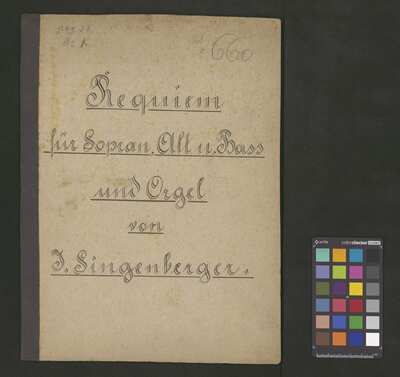 660
Requiem
für Sopran, Alt u. Bass
und Orgel
von
J. Singenberger.